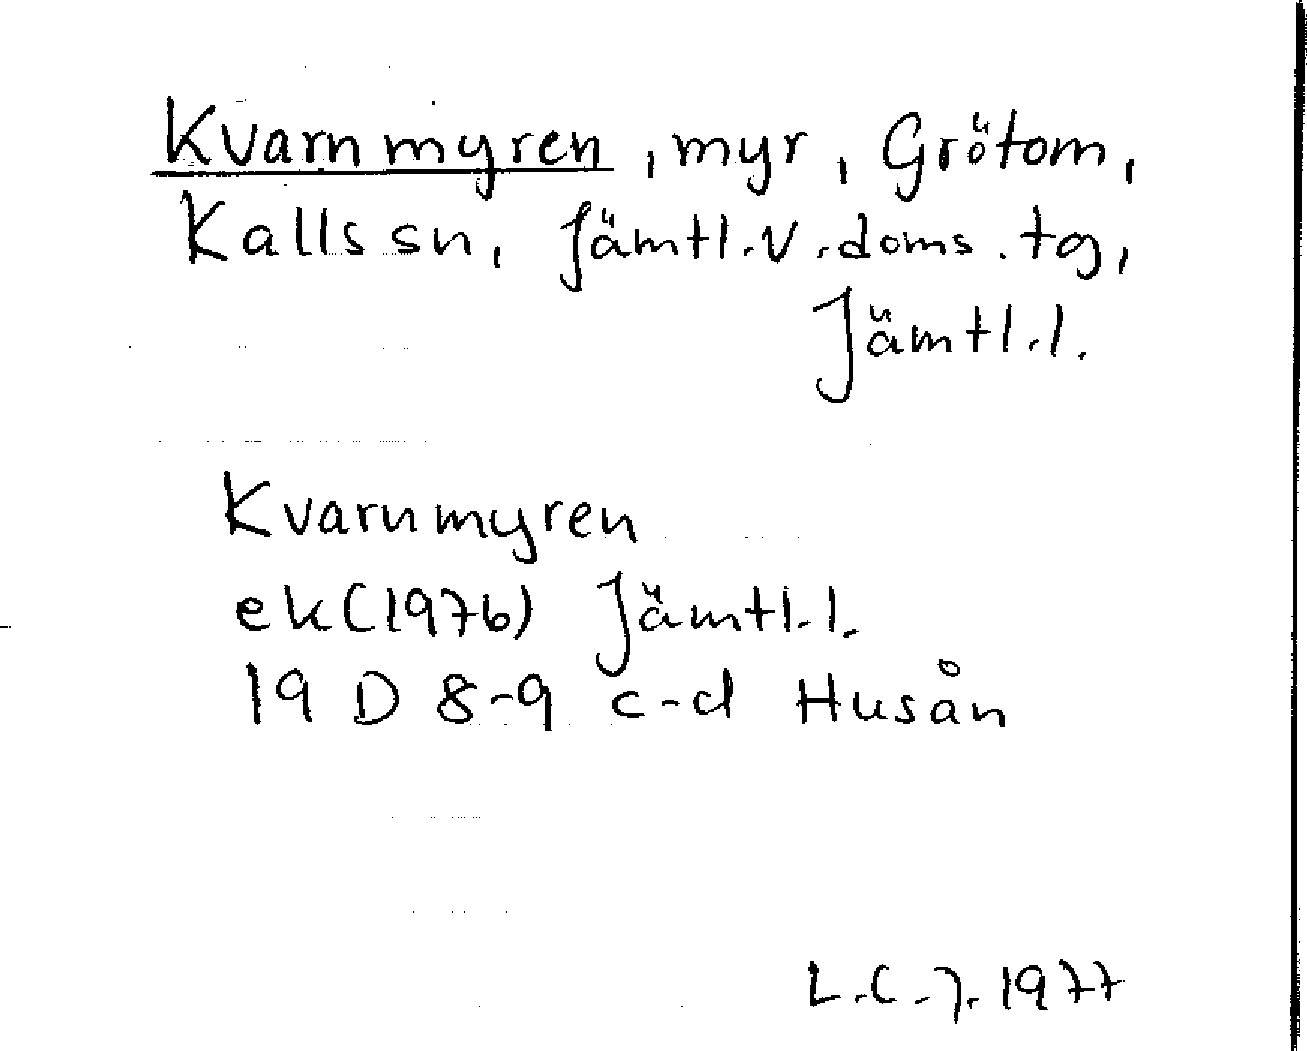 Kvarnmyren, myr, Grötom,
Kalls sn, Jämtl.v.doms.tg,
Jämtl.l.
Kvarnmyren
ek(1976) Jämtl.l.
19 D 8-9 c-d Husån
L.C.J. 1977